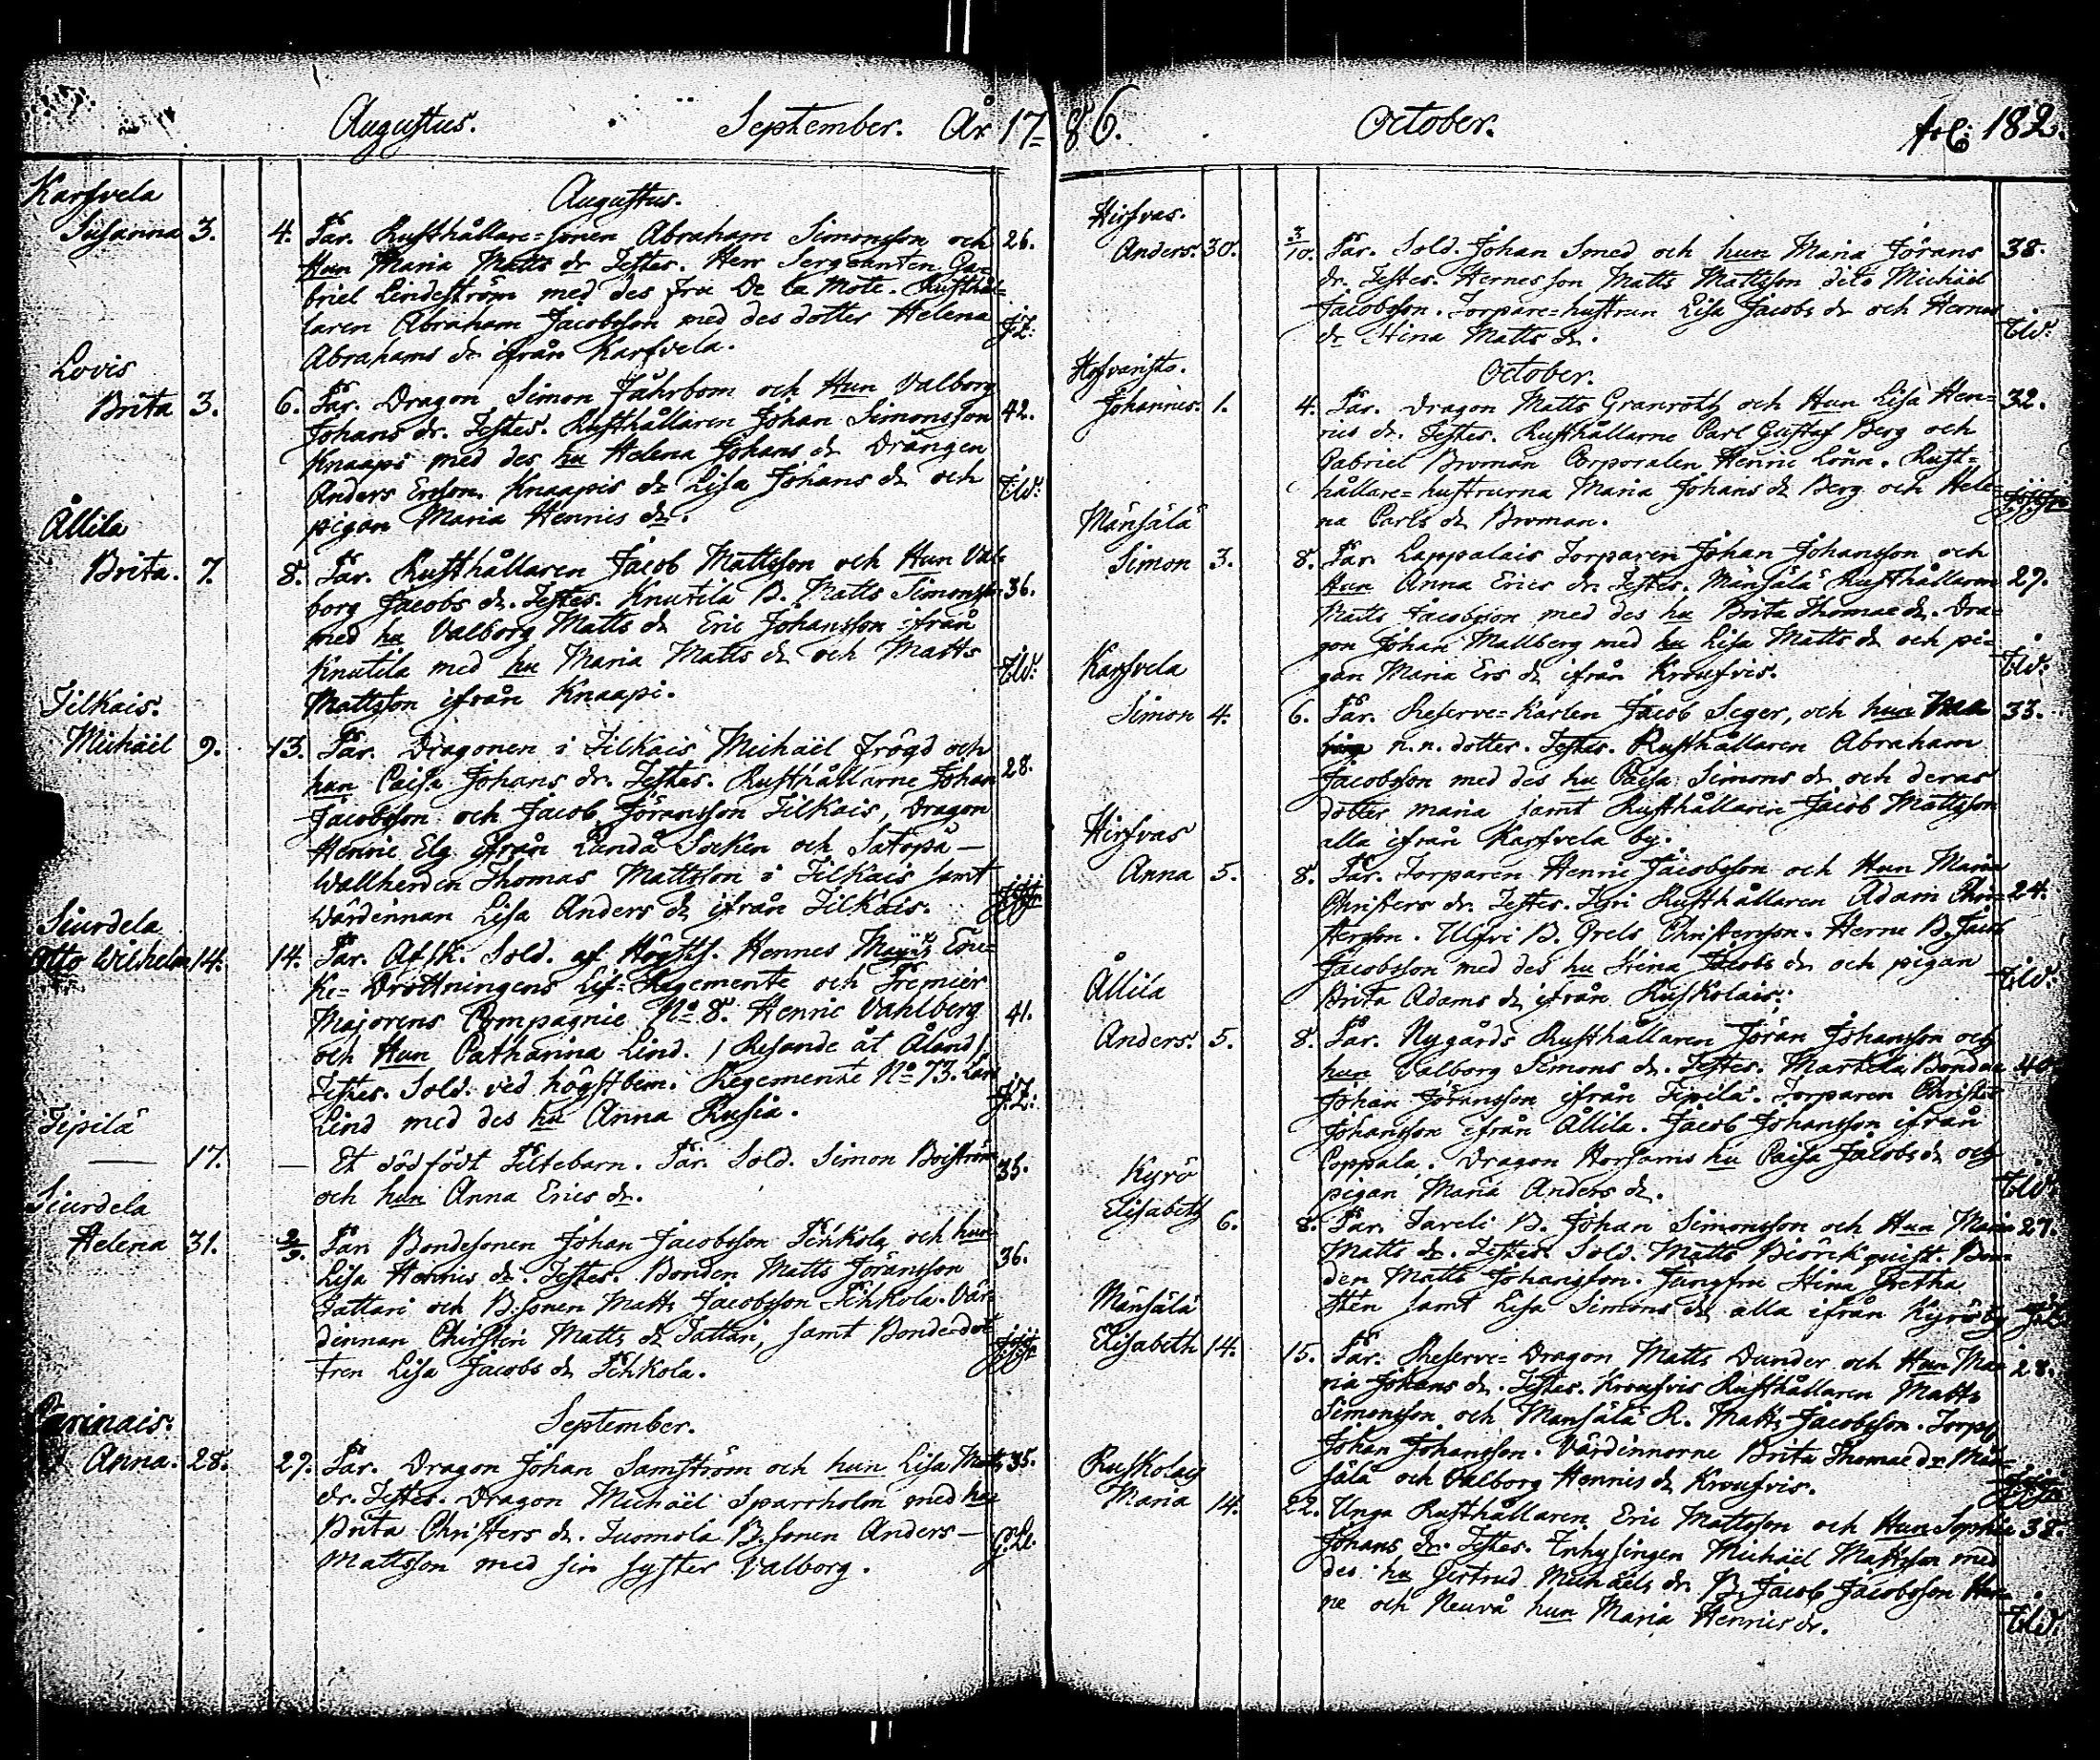 Augustus. September. År 17
86. October. fol: 182.
Karfvela
Augustus.
Susanna 3. 4. För. Rusthållare=sonen Abraham Simonsson och 26.
Hun Maria Matts dr Testes. Herr Sergeanten Ga=
briel Lindeström med des fru De la Mote. Rusthål=
laren Abraham Jacobsson med des dotter Helena
Abrahams dr ifrån Karfvela.
Lovis
Brita 3. 6. För. Dragon Simon Fährbom och Hun Valborg 42.
Johans dr. Testes. Rusthållaren Johan Simonsson
Knaapi med des hu Helena Johans dr Drängen
Anders Ersson. Knaapis dr Lisa Johans dr och
pigan Maria Henrics dr.
Ållila
Brita. 7. 8. För. Rusthållaren Jacob Mattsson och Hun Val=
borg Jacobs dr. Testes. Knutila B. Matts Simonsson 36.
med hu Valborg Matts dr Eric Johansson ifrån
Knutila med hu Maria Matts dr och Matts
Mattsson ifrån Knaapi.
Tilkais.
Michäel 9. 13. För. Dragonen i Tilkais Michäel Frögd och
hun Caisa Johans dr. Testes. Rusthållarne Johan 28.
Jacobsson och Jacob Jöransson Tilkais, Dragon
Henric Elg ifrån Lundå Socken och Satopä
Wallherden Thomas Mattsson i Tilkais samt
Wärdinnan Lisa Anders dr ifrån Tilkais.
Siurdela
Otto Wilhelm 14. 14. För. Afsk. Sold. af Högsts. Hennes Mayts En=
ke= Drottningens Lif=Regemente och Premier
Majorens Compagnie No 8. Henric Vahlberg 41.
och Hun Catharina Lind. / Resande åt Åland /
Testes. Sold. ved högstbem. Regemente No 73. Lars
Lind med des hu Anna Rusia.
Tipilä
17. Et dödfödt Piltebarn. För. Sold. Simon Boiström 35.
och hun Anna Erics dr.
Siurdela
Helena 31. 2/9. För. Bondesonen Johan Jacobsson Pehkola och hun
Lisa Henrics dr. Testes. Bonden Matts Jöransson 36.
Tattari och B:sonen Matts Jacobsson Pehkola. Vär=
dinnan Chirstin Matts dr Tattari, samt Bondedot
tren Lisa Jacobs dr Pehkola.
September.
Anna. 28. 29. För. Dragon Johan Samström och hun Lisa Matts 35.
dr. Testes. Dragon Michäel Sparrholm med hu
Brita Christers dr. Tuomola B.sonen Anders
Mattsson med sin syster Valborg.
Hirfvas.
Anders. 30. 3/10. För. Sold. Johan Smed och hun Maria Jörans 38.
dr. Testes. Hernes son Matts Mattsson dito Michäel
Jacobsson. Torpare=hustrun Lisa Jacobs dr och Hernes
dr Stina Matts dr.
October.
Johannes. 1. 4. För. Dragon Matts Granroth och Hun Lisa Hen= 32.
rics dr. Testes. Rusthållarne Carl Gustaf Berg och
Gabriel Broman Corporalen Henric Lönn. Rust=
hållare=hustrurna Maria Johans dr Berg och Hele=
na Carls dr Broman.
Mänsälä
Simon 3. 8. För. Lappalais Torparen Johan Johansson och
Hun Anna Erics dr. Testes. Mänsälä Rusthållaren 29.
Matts Jacobsson med des hu Brita Thomae dr. Dra=
gon Johan Mallberg med hu Lisa Matts dr och pi=
gan Maria Ers dr ifrån Kroufvis.
Karfvela
Simon 4. 6. För. Reserve=Karlen Jacob Seger, och hun 33.
n.n. dotter. Testes. Rusthållaren Abraham
Jacobsson med des hu Caisa Simons dr och deras
dotter maria samt Rusthållaren Jacob Mattsson
alla ifrån Karfvela by.
Hirfvas
Anna 5. 8. För. Torparen Henric Jacobsson och Hun Maria
Christers dr. Testes. Rusthållaren Adam Chri= 24.
stersson. B. Grels Christersson. Herne B. Jacob
Jacobsson med des hu Stina Jacobs dr och pigan
Brita Adams dr ifrån Ruskolais.
Ållila
Anders. 5. 8. För. Nygårds Rusthållaren Jöran Johansson och
hun Valborg Simons dr. Testes. Markela Bonden 40.
Johan Jöransson ifrån Tipilä. Torparen Christer
Johansson ifrån Ållila. Jacob Johansson ifrån
Coppala. Dragon Horsams hu Caisa Jacobs dr och
pigan Maria Anders dr.
Kyrö
Elisabeth 6. 8. För. Tareli B. Johan Simonsson och Hun Maria 27.
Matts dr. Testes. Sold. Matts Biörckquist. Bon=
den Matts Johansson. Jungfru Stina Gretha
Sten samt Lisa Simons dr alla ifrån Kyrö by
Mänsälä
Elisabeth 14. 15. För. Reserve=Dragon Matts Dunder och Hun Ma= 28.
ria Johans dr. Testes. Kroufvis Rusthållaren Matts
Simonsson och Mansälä R. Matts Jacobsson. Torp.
Johan Johansson. Värdinnorne Brita Thomae dr Män=
sälä och Valborg Henrics dr Kroufvis.
Ruskolais
Maria 14. 22. Unga Rusthållaren Eric Mattsson och Hun Sophia 38.
Johans dr. Testes. Inhysingen Michäel Mattsson med
des hu Gertrud Michaels dr. B. Jacob Jacobsson Her=
ne och Neuvå hun Maria Henrics dr.